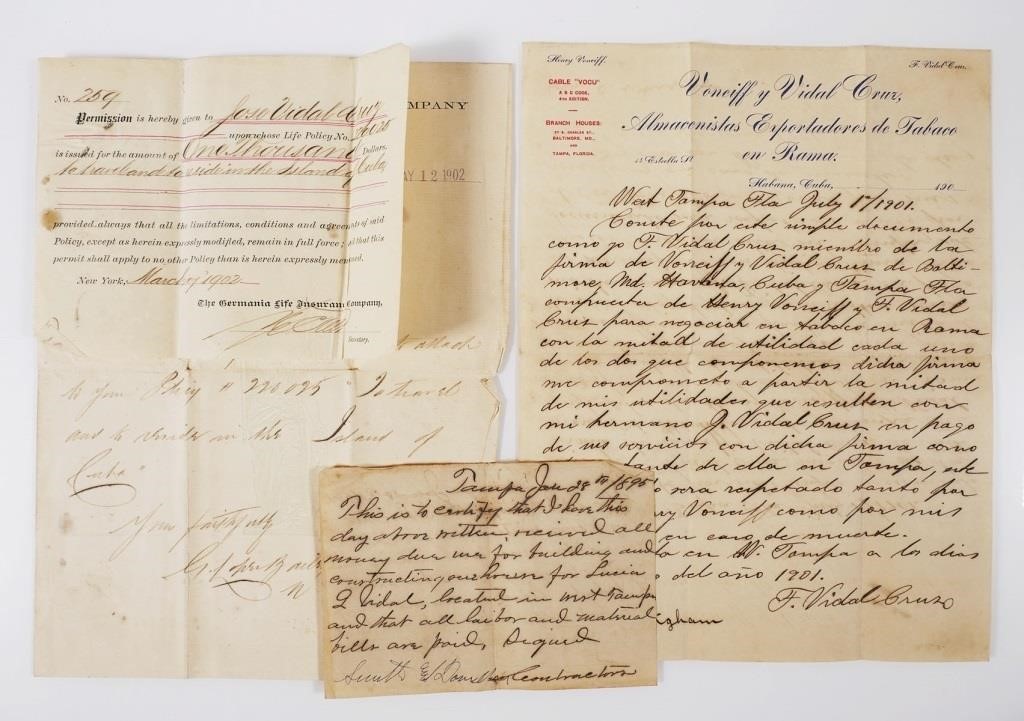 No. 259
Permission is hereby given to Jose Vidal Cruz
upon whose Life Policy No.
is issued for the amount of One Thousand Dollars,
to travel and to reside in the Island of Cuba,
provided always that all the limitations, conditions and agreements of said
Policy, except as herein expressly modified, remain in full force; and that this
permit shall apply to no other Policy than is herein expressly mentioned.
New York, March 1902
The Germania Life Insurance Company,
Secretary.
OMPANY
AY 12 1902
attach
to your Policy # 220025 "To travel
and to reside in the Island of
Cuba"
Your faithfully
Tampa Jan 28th 1895
This is to certify that I have this
day above written, recieved all
money due me for building and
constructing one house for Lucia
Q Vidal, located in west Tampa
and that all laibor and material
bills are paid, Signed
Smith & Contractors
Henry Voneiff.
F. Vidal Cruz.
CABLE "VOCU"
A B C CODE,
4TH EDITION.
BRANCH HOUSES:
S. CHARLES ST.,
BALTIMORE, MD.,
AND
TAMPA, FLORIDA.
Voneiff y Vidal Cruz,
Almacenistas Exportadores de Tabaco
en Rama.
Estrella St
Habana, Cuba, 190
West Tampa Fla July 1º/1901.
Conste por este simple documento
como yo F. Vidal Cruz miembro de la
firma de Voneiff y Vidal Cruz de Balti-
more, Md, Havana, Cuba y Tampa Fla
compuesta de Henry Voneiff y F. Vidal
Cruz para negociar en tabaco en Rama
con la mitad de utilidad cada uno
de los dos que componemos dicha firma
me comprometo a partir la mitad
de mis utilidades que resulten con
mi hermano J. Vidal Cruz en pago
de sus servicios con dicha firma como
tante de ella en Tampa, este
o sera respetado tanto por
ry Voneiff como por mis
en caso de muerte.
a en W. Tampa a los dias
del año 1901.
F. Vidal Cruz
igham